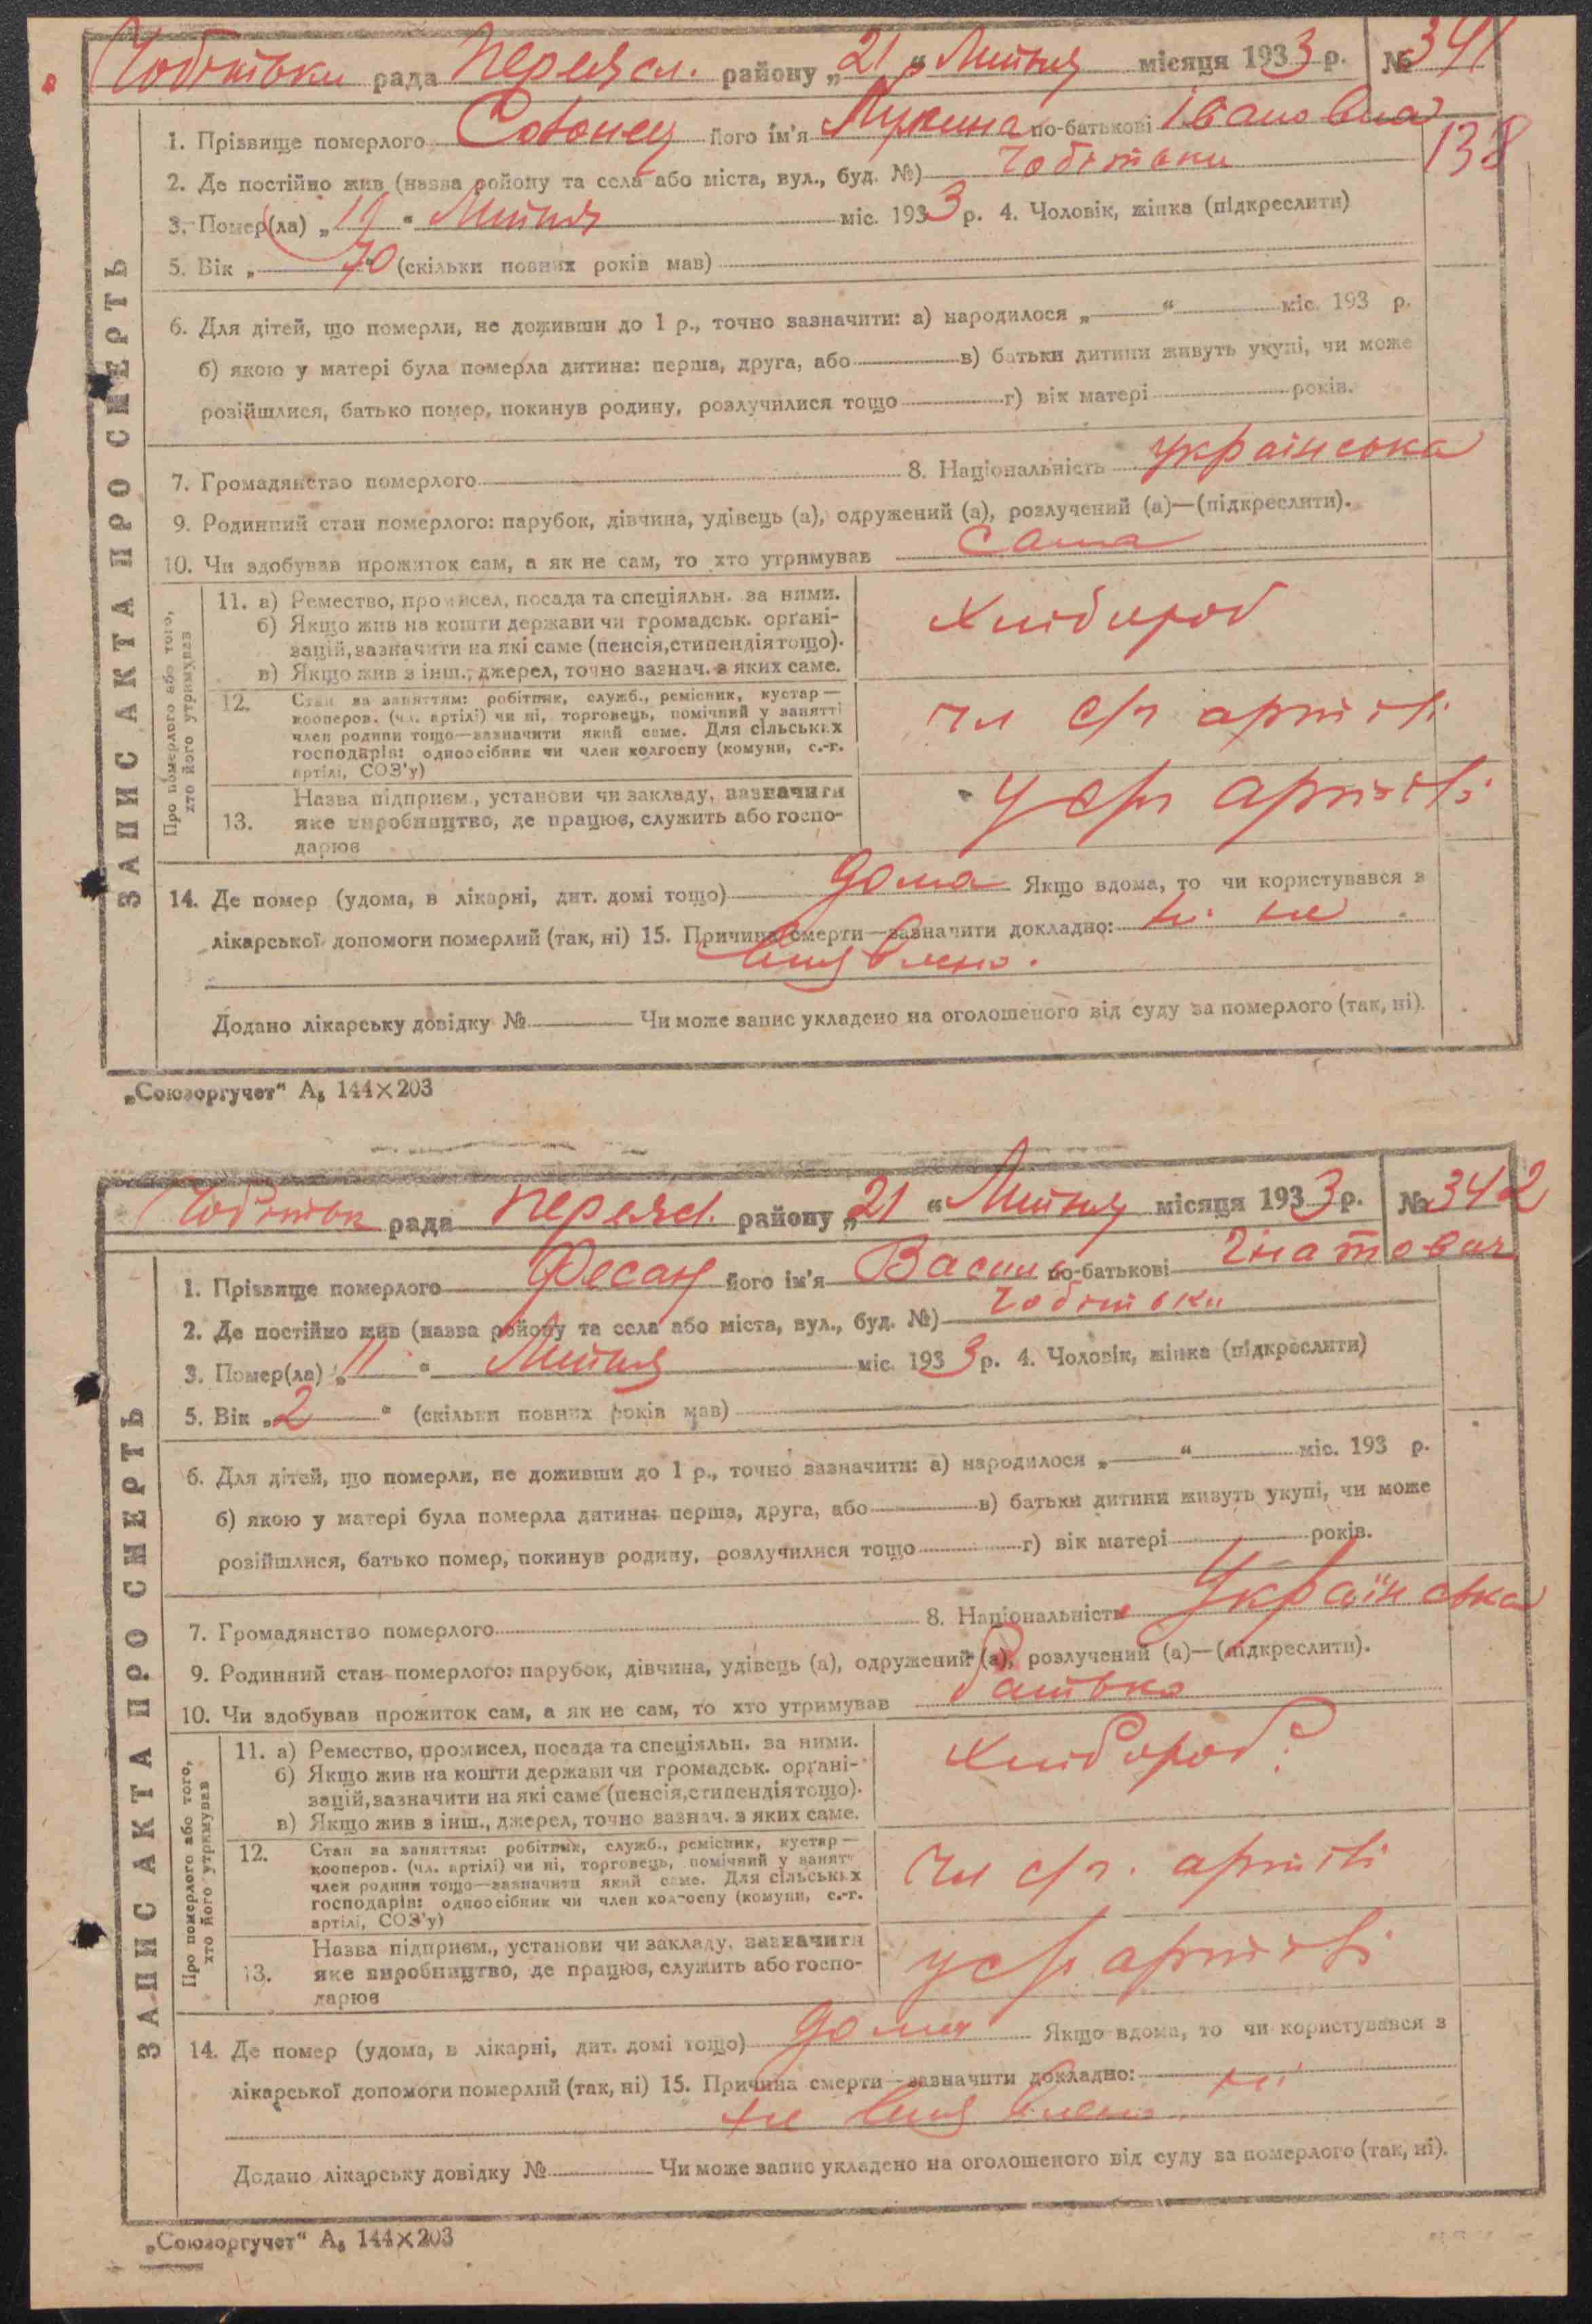 Чобітьки рада Переясл. району „21“ Липня місяця 1933 р. № 341
138
1. Прізвище померлого його ім'я Лукина по-батькові Івановна
2. Де постійно жив (назва району та села або міста, вул., буд. №) Чобітьки
3. Помер(ла) „19“ Липня міс. 1933 р. 4. Чоловік, жінка (підкреслити)
5. Вік „70“ (скільки повних років мав)
6. Для дітей, що померли, не доживши до 1 р., точно зазначити: а) народилося „ “ міс. 193 р.
б) якою у матері була померла дитина: перша, друга, або в) батьки дитини живуть укупі, чи може
розійшлися, батько помер, покинув родину, розлучилися тощо г) вік матері років.
7. Громадянство померлого 8. Національність українська
9. Родинний стан померлого: парубок, дівчина, удівець (а), одружений (а), розлучений (а)—(підкреслити).
10. Чи здобував прожиток сам, а як не сам, то хто утримував сама
ЗАПИС АКТА ПРО СМЕРТЬ
Про померлого або того,
хто його утримував
11. а) Ремество, промисел, посада та спеціяльн. за ними.
б) Якщо жив на кошти держави чи громадськ. органі-
зацій, зазначити на які саме (пенсія, стипендія тощо).
в) Якщо жив з інш., джерел, точно зазнач. з яких саме.
Хлібороб
12. Стан за заняттям: робітник, служб., ремісник, кустар—
кооперов. (чл. артілі) чи ні, торговець, помічний у занятті
член родини тощо—зазначити який саме. Для сільських
господарів: одноосібник чи член колгоспу (комуни, с.-г.
артілі, СОЗ'у)
чл с/г артілі
13. Назва підприєм., установи чи закладу, зазначити
яке виробництво, де працює, служить або госпо-
дарює
У с/г артілі
14. Де помер (удома, в лікарні, дит. домі тощо) дома Якщо вдома, то чи користувався з
лікарської допомоги померлий (так, ні) 15. Причина смерти—зазначити докладно: ні. не
виявлено.
Додано лікарську довідку № Чи може запис укладено на оголошеного від суду за померлого (так, ні).
„Союзоргучет“ А₅ 144×203
Чобітьк рада Переясл. району „21“ Липня місяця 1933 р. № 342
1. Прізвище померлого Фесак його ім'я Васил по-батькові Гнатович
2. Де постійно жив (назва району та села або міста, вул., буд. №) Чобітьки
3. Помер(ла) „11“ Липня міс. 1933 р. 4. Чоловік, жінка (підкреслити)
5. Вік „2“ (скільки повних років мав)
6. Для дітей, що померли, не доживши до 1 р., точно зазначити: а) народилося „ “ міс. 193 р.
б) якою у матері була померла дитина: перша, друга, або в) батьки дитини живуть укупі, чи може
розійшлися, батько помер, покинув родину, розлучилися тощо г) вік матері років.
7. Громадянство померлого 8. Національність Українська
9. Родинний стан померлого: парубок, дівчина, удівець (а), одружений (а), розлучений (а)—(підкреслити).
10. Чи здобував прожиток сам, а як не сам, то хто утримував батько
ЗАПИС АКТА ПРО СМЕРТЬ
Про померлого або того,
хто його утримував
11. а) Ремество, промисел, посада та спеціяльн. за ними.
б) Якщо жив на кошти держави чи громадськ. органі-
зацій, зазначити на які саме (пенсія, стипендія тощо).
в) Якщо жив з інш., джерел, точно зазнач. з яких саме.
Хлібороб
12. Стан за заняттям: робітник, служб., ремісник, кустар—
кооперов. (чл. артілі) чи ні, торговець, помічний у занятт
член родини тощо—зазначити який саме. Для сільських
господарів: одноосібник чи член колгоспу (комуни, с.-г.
артілі, СОЗ'у)
чл с/г. артілі
13. Назва підприєм., установи чи закладу, зазначити
яке виробництво, де працює, служить або госпо-
дарює
у с/г артілі
14. Де помер (удома, в лікарні, дит. домі тощо) дома Якщо вдома, то чи користувався з
лікарської допомоги померлий (так, ні) 15. Причина смерти—зазначити докладно: ні
не виявлено.
Додано лікарську довідку № Чи може запис укладено на оголошеного від суду за померлого (так, ні).
„Союзоргучет“ А₅ 144×203